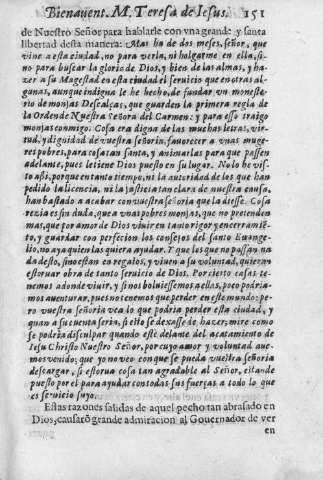 Bienauent. M. Teresa de Iesus. 151
de Nuestro Señor para hablarle con vna grande y santa
libertad desta manera: Mas ha de dos meses, señor, que
vine a esta ciudad, no para verla, ni holgarme en ella, si-
no para buscar la gloria de Dios, y bien de las almas, y ha-
zer a su Magestad en esta ciudad el seruicio que en otras al-
gunas, aunque indigna le he hecho, de fundar vn moneste-
rio de monjas Descalças, que guarden la primera regla de
la Orden de Nuestra Señora del Carmen: y para esso traigo
monjas conmigo. Cosa era digna de las muchas letras, vir-
tud, y dignidad de vuestra señoria, fauorecer a vnas muge-
res pobres, para cosa tan santa, y animarlas para que passen
adelante, pues le tiene Dios puesto en su lugar. No lo he vis-
to assi, porque en tanto tiempo, ni la autoridad de los que han
pedido la licencia, ni la justicia tan clara de nuestra causa,
han bastado a acabar con vuestra señoria que la diesse. Cosa
rezia es sin duda, que a vnas pobres monjas, que no pretenden
mas, que por amor de Dios viuir en tanto rigor, y encerramiẽ-
to, y guardar con perfecion los consejos del santo Euange-
lio, no aya quien las quiera ayudar. Y que los que no passan na-
da desto, sino estan en regalos, y viuen a su voluntad, quieran
estoruar obra de tanto seruicio de Dios. Por cierto casas te-
nemos adonde viuir, y si nos boluiessemos a ellas, poco podria-
mos auenturar, pues no tenemos que perder en este mundo: pe-
ro vuestra señoria vea lo que podria perder esta ciudad, y
quan a su cuenta seria, si esto se dexasse de hazer, mire como
se podria disculpar quando estè delante del acatamiento de
Iesu Christo Nuestro Señor, por cuyo amor y voluntad aue-
mos venido: que yo no veo con que se pueda vuestra señoria
descargar, si estorua cosa tan agradable al Señor, estando
puesto por el para ayudar con todas sus fuerças a todo lo que
es seruicio suyo.
Estas razones salidas de aquel pecho tan abrasado en
Dios, causarõ grande admiracion al Gouernador de ver
en